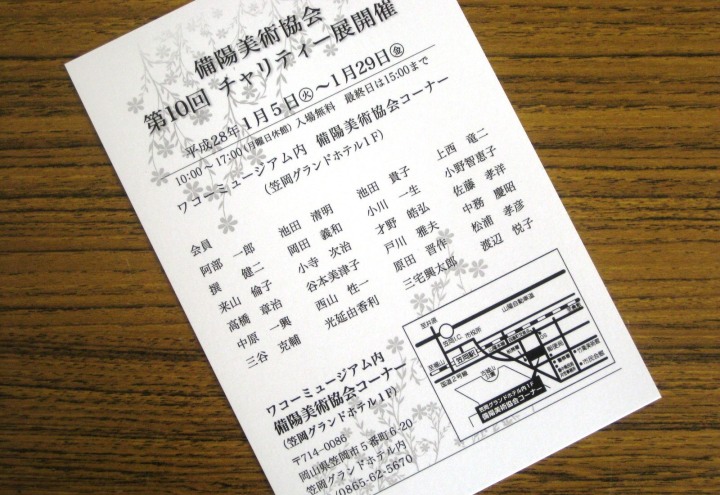 備陽美術協会
第10回 チャリティー展開催
平成28年1月5日㊋～1月29日㊎
10:00～17:00(月曜日休館) 入場無料 最終日は15:00まで
ワコーミュージアム内 備陽美術協会コーナー
(笠岡グランドホテル1F)
会員 池田 清明 池田 貴子 上西 竜二
阿部 一郎 岡田 義和 小川 一生 小野智恵子
撰 健二 小寺 次治 才野 皓弘 佐藤 孝洋
来山 倫子 谷本美津子 戸川 雅夫 中務 慶昭
高橋 章治 西山 性一 原田 晋作 松浦 孝彦
中原 一興 光延由香利 三宅興太郎 渡辺 悦子
三谷 克輔
ワコーミュージアム内
備陽美術協会コーナー
(笠岡グランドホテル1F)
〒714-0086
岡山県笠岡市5番町6-20
笠岡グランドホテル内
/0865-62-5670
至井原
山陽自動車道
笠岡I.C.
市役所
至福山
笠岡駅
国道2号線
郵便局
竹喬美術館
市民会館
笠岡グランドホテル内1F
備陽美術協会コーナー